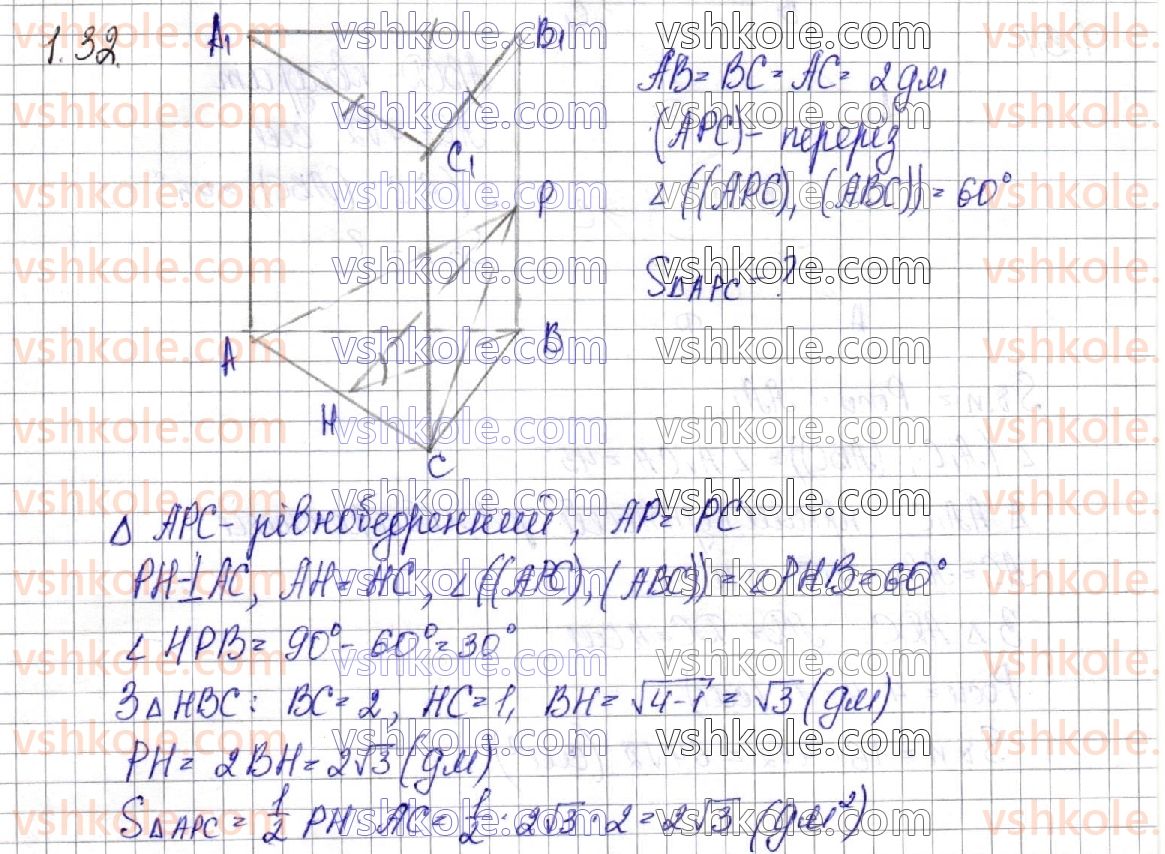 1.32.
A₁
B₁
C₁
P
A
B
H
C
AB = BC = AC = 2 дм
(APC) - переріз
∠((APC), (ABC)) = 60°
S△APC - ?
△ APC - рівнобедренний, AP = PC
PH ⊥ AC, AH = HC, ∠((APC), (ABC)) = ∠PHB = 60°
∠ HPB = 90° - 60° = 30°
З △ HBC: BC = 2, HC = 1, BH = √4-1 = √3 (дм)
PH = 2BH = 2√3 (дм)
S△APC = 1/2 PH · AC = 1/2 · 2√3 · 2 = 2√3 (дм²)
vshkole.com